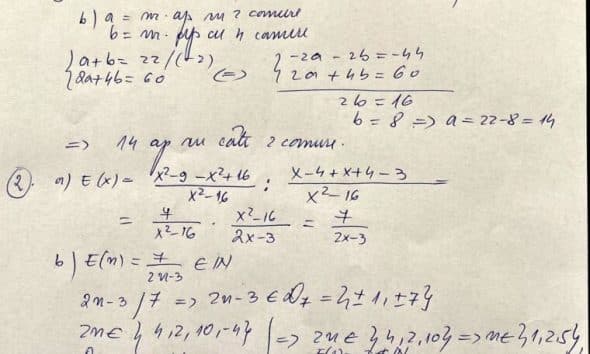 b) a = nr. ap cu 2 camere
b = nr. ap cu 4 camere
{ a+b = 22 /(-2)
{ 2a+4b = 60 <=> { -2a - 2b = -44
{ 2a + 4b = 60
2b = 16
b = 8 => a = 22-8 = 14
=> 14 ap cu câte 2 camere.
2. a) E(x) = x²-9-x²+16 / x²-16 : x-4+x+4-3 / x²-16 =
= 7 / x²-16 · x²-16 / 2x-3 = 7 / 2x-3
b) E(n) = 7 / 2n-3 ∈ IN
2n-3 / 7 => 2n-3 ∈ D₇ = {±1, ±7}
2n ∈ {4, 2, 10, -4} | => 2n ∈ {4, 2, 10} => n ∈ {1, 2, 5}